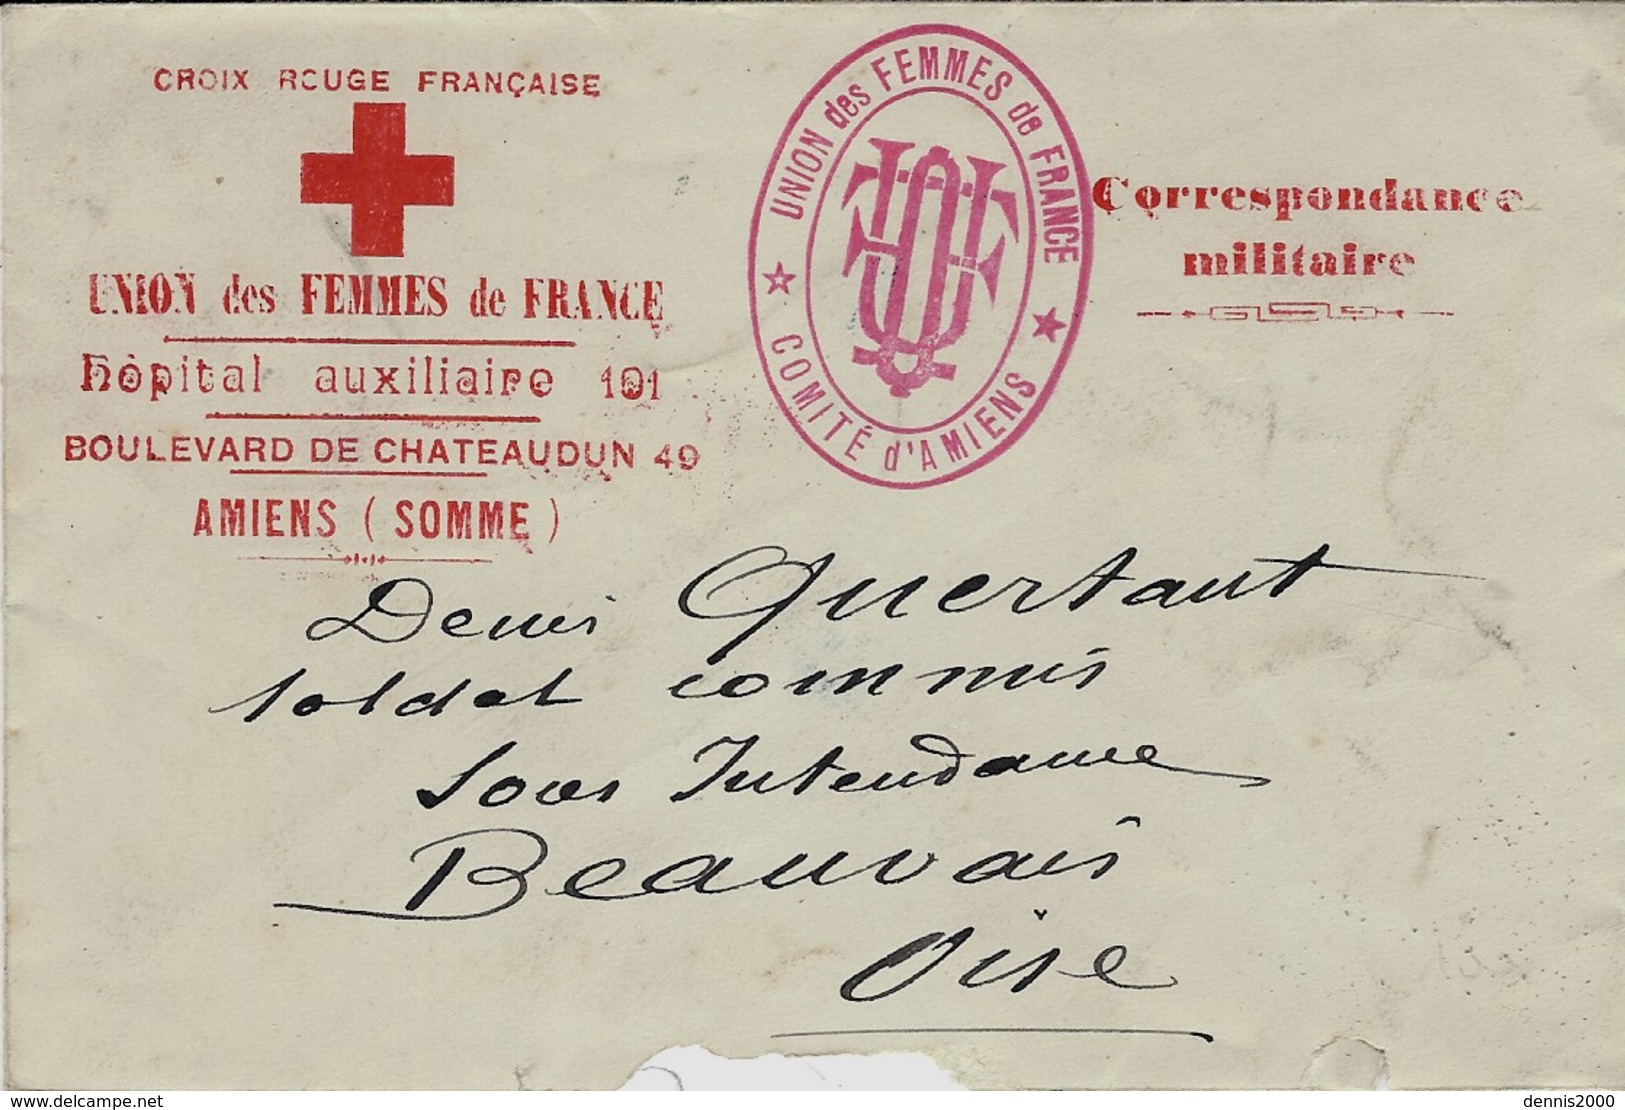 CROIX ROUGE FRANÇAISE
UNION des FEMMES de FRANCE
hôpital auxiliaire 101
BOULEVARD DE CHATEAUDUN 49
AMIENS ( SOMME )
UNION des FEMMES de FRANCE
COMITÉ d'AMIENS
Correspondance
militaire
Denis Quertant
soldat commis
Sous Intendance
Beauvais
Oise
delcampe.net
dennis2000